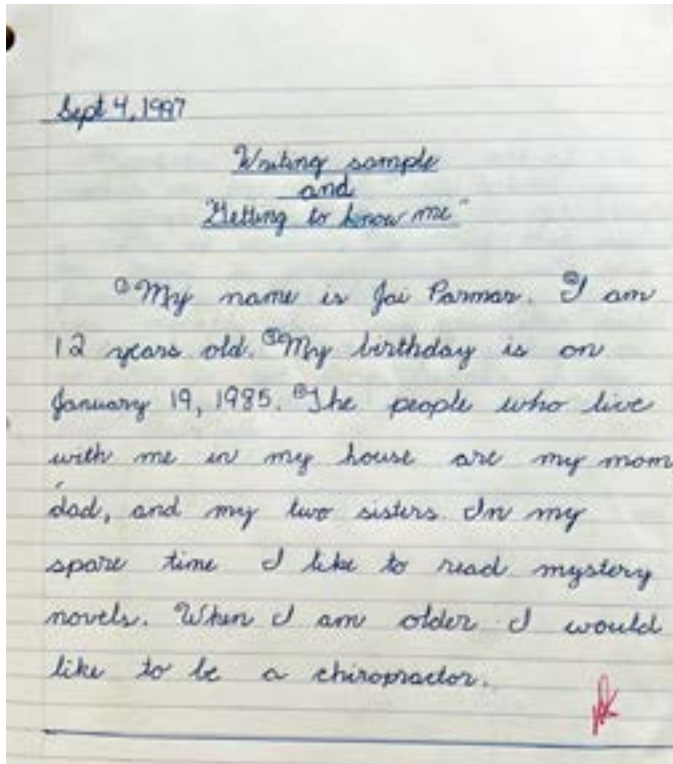 Sept 4, 1997
Writing sample
and
Getting to know me"
①My name is Jai Parmar. ②I am
12 years old. ③My birthday is on
January 19, 1985. ④The people who live
with me in my house are my mom
dad, and my two sisters. In my
spare time I like to read mystery
novels. When I am older I would
like to be a chiropractor.